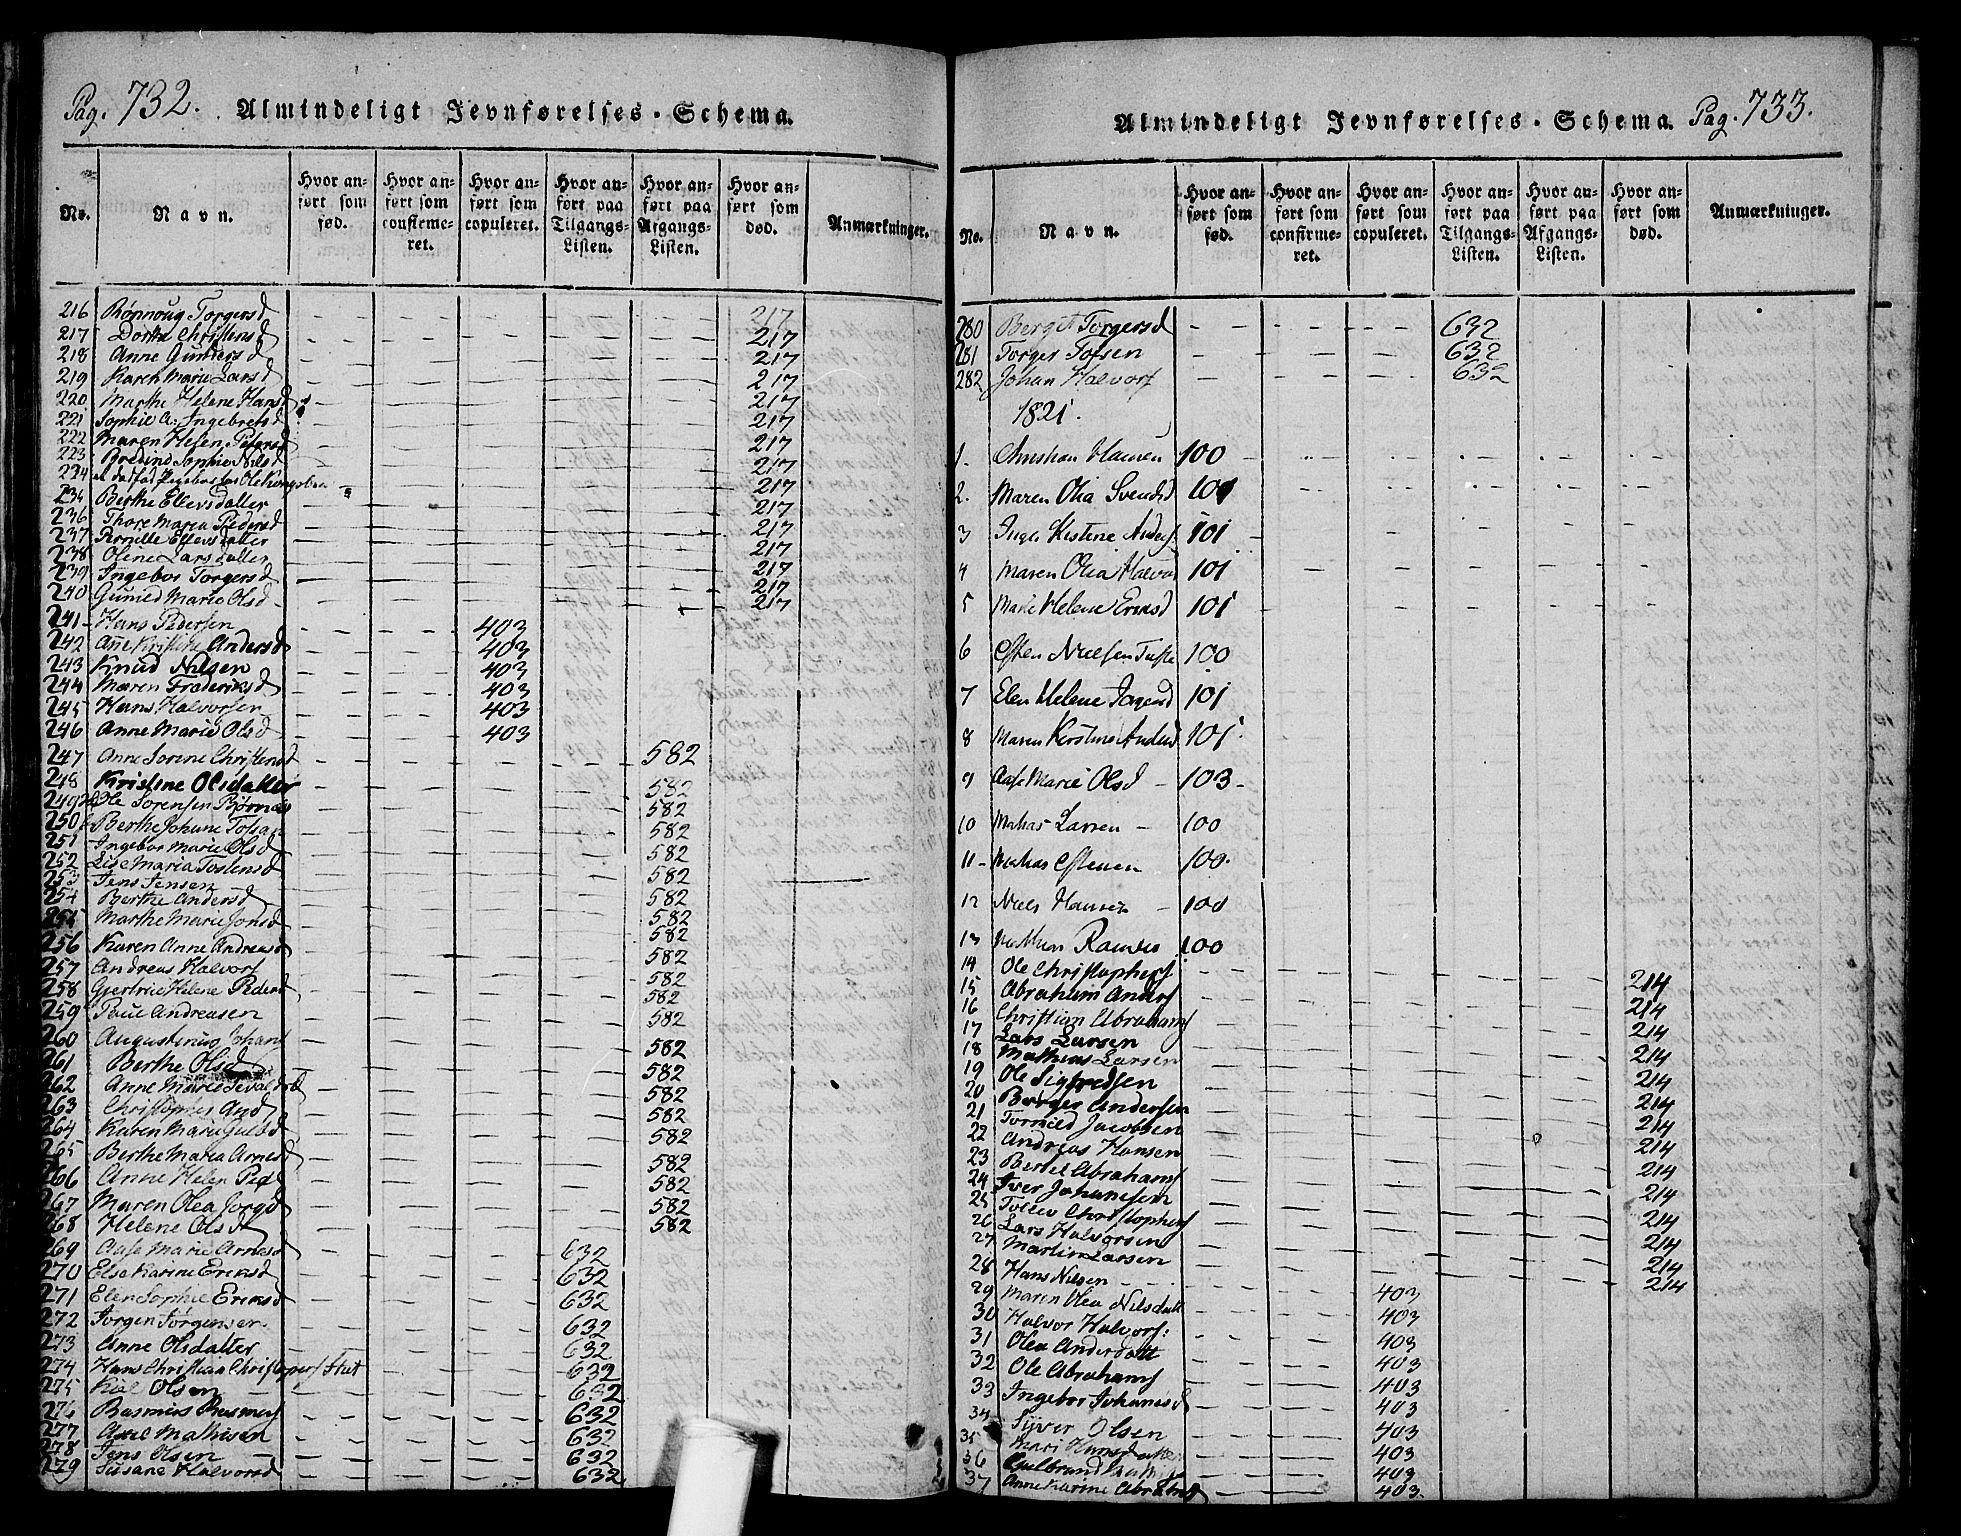 Pag. 732. Almindeligt Jevnførelses-Schema.
No. Navn. Hvor anført som fød. Hvor anført som confirmeret. Hvor anført som copuleret. Hvor anført paa Tilgangs-Listen. Hvor anført paa Afgangs-Listen. Hvor anført som død. Anmærkninger.
216 Rønnoug Torgersd 217
217 Dorthe Christensd 217
218 Anne Gundersd 217
219 Karen Marie Larsd 217
220 Marthe Helene Hansd 217
221 Sophie A. Ingebretsd 217
222 Maren Helen Pedersd 217
223 Bredine Sophie Nilsd 217
224
234 Berthe Ellevsdatter 217
236 Thore Maria Pedersd 217
237 Pernille Ellevsdatter 217
238 Oline Larsdatter 217
239 Ingebor Torgersd 217
240 Gunied Marie Olsd 217
241 Hans Pedersen 403
242 Ane Kristine Andersd 403
243 Knud Nilsen 403
244 Maren Frederiksd 403
245 Hans Halvorsen 403
246 Anne Marie Olsd 403
247 Anne Sorine Christensd 582
248 Kristine Olsdatter 582
249 Ole Sorensen 582
250 Berthe Johane 582
251 Ingebor Marie Olsd 582
252 Lise Maria Tostensd 582
253 Jens Jensen 582
254 Berthe Andersd 582
255 Marthe Marie Jonsd 582
256 Karen Anne Andreasd 582
257 Andreas Halvors 582
258 Gjertrue Helene Pedersd 582
259 Poul Andreasen 582
260 Augustinus Johans 582
261 Berthe Olsd 582
262 Anne Marie 582
263 Christopher And 582
264 Karen Marie Gulbd 582
265 Berthe Maria Arnesd 582
266 Anne Helen Ped 582
267 Maren Olea Jorgd 582
268 Helene Olsd 582
269 Aase Marie Arnesd 632
270 Else Karine Eriksd 632
271 Elen Sophie Eriksd 632
272 Jorgen Jørgensen 632
273 Anne Olsdatter 632
274 Hans Christian Christophers 632
275 Kiel Olsen 632
276 Rasmus Rasmus 632
277 Axel Mathisen 632
278 Jens Olsen 632
279 Susane Halvorsd 632
Almindeligt Jevnførelses-Schema. Pag. 733.
No. Navn. Hvor anført som fød. Hvor anført som confirmeret. Hvor anført som copuleret. Hvor anført paa Tilgangs-Listen. Hvor anført paa Afgangs-Listen. Hvor anført som død. Anmærkninger.
280 Berget Torgersd 632
281 Torger Tofsen 632
282 Johan Halvors 632
1821.
1. Christian Hansen 100
2. Maren Olia Svendsd 101
3 Inger Kistine Anders 101
4 Maren Olia Halvor 101
5 Marie Helene Ernsd 101
6 Esten Nielsen 100
7 Elen Helene 101
8 Maren Kerstine Andersd 101
9 Aase Marie Olsd 103
10 Mathias Larsen 100
11 Mathias Estensen 100
12 Niels Hansen 100
13 100
14 Ole Christophers 214
15 Abraham Anders 214
16 Christian Abrahams 214
17 Lars Larsen 214
18 Mathias Larsen 214
19 Ole Sigfredsen 214
20 Børger Andersen 214
21 Tormed Jacobsen 214
22 Andreas Hansen 214
23 Bertel Abrahams 214
24 Iver Johanesen 214
25 Tollev Christophers 214
26 Lars Halvorsen 214
27 Martin Larsen 214
28 Hans Nilsen 403
29 Maren Olea Nilsdatt 403
30 Halvor Halvors: 403
31 Olea Andersdatt 403
32 Ole Abrahams 403
33 Ingebor Johanesd 403
34 Syver Olsen 403
35 Kari Hansdatter 403
36 Gulbrand 403
37 Anne Karine Abrahd 403.